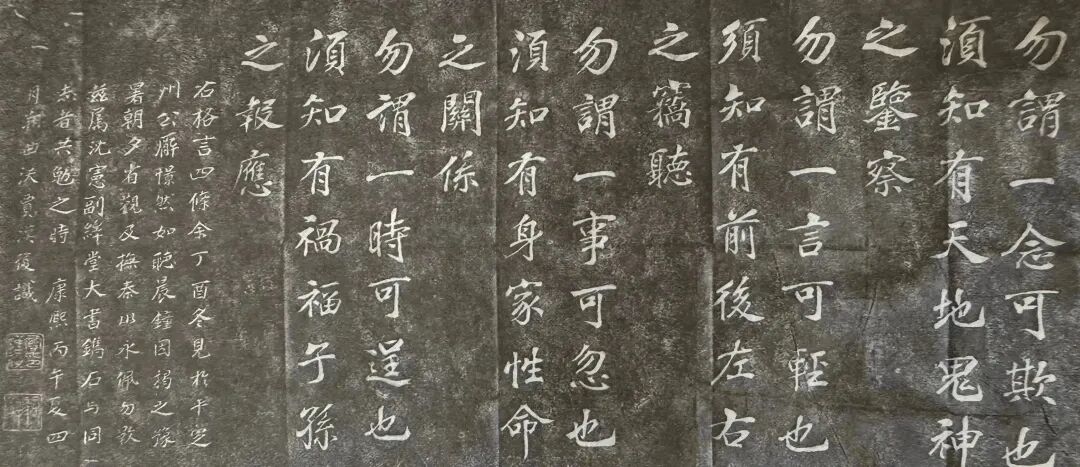 勿謂一念可欺也
須知有天地鬼神
之鑒察
勿謂一言可輕也
須知有前後左右
之竊聽
勿謂一事可忽也
須知有身家性命
之關係
勿謂一時可逞也
須知有禍福子孫
之報應
右格言四條余丁酉冬見於平定
州公廨憬然如聽晨鐘因揭之豫
署朝夕省觀及撫秦永佩勿
茲属沈憲副繹堂大書鐫石与同
志者共勉之時 康熙丙午夏四
月曲沃賈漢復識